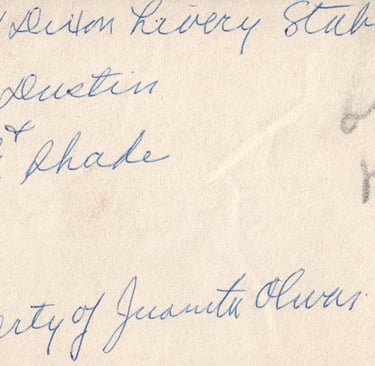 Dixon Livery Stab
Dustin
&
Rhade
erty of Juanita Olivas